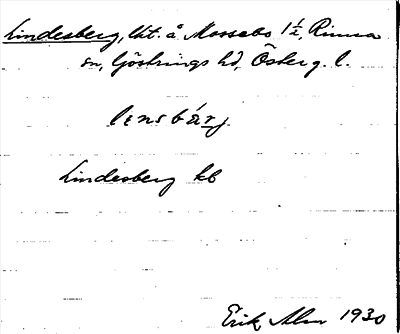 Lindesberg, lht. å Mossebo 1½, Rinna
sn, Göstrings hd, Österg. l.
lɪnsbárj
Lindesberg kb
Erik Alm 1930